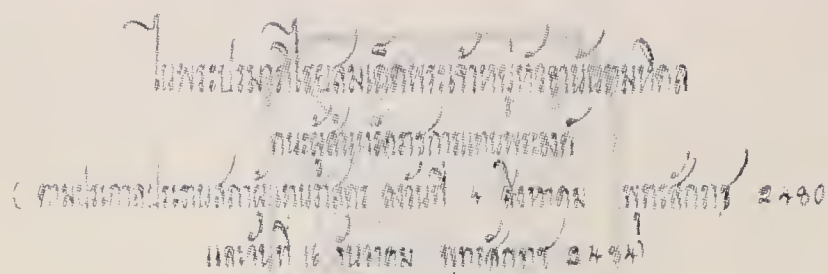 ในพระปรมาภิไธยสมเด็จพระเจ้าอยู่หัวอานันทมหิดล
คณะผู้สำเร็จราชการแทนพระองค์
( ตามประกาศประธานสภาผู้แทนราษฎร ลงวันที่ ๔ สิงหาคม พุทธศักราช ๒๔๘๐
และวันที่ ๑๖ ธันวาคม พุทธศักราช ๒๔๘๔)